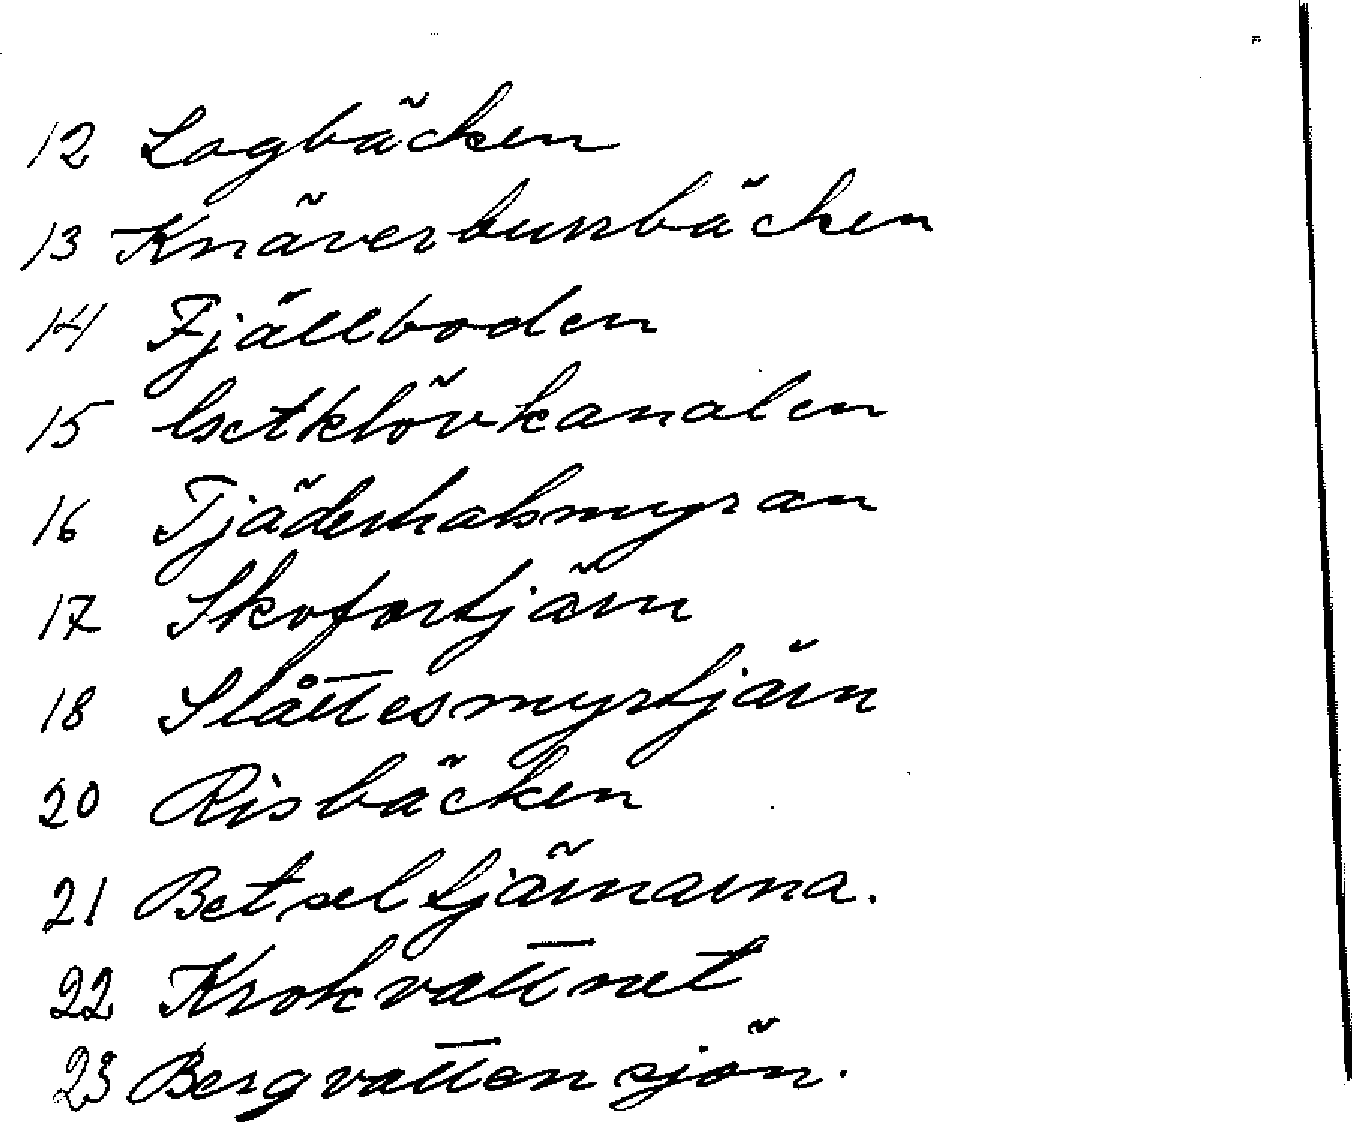 12 Logbäcken
13 Knäverbursbäcken
14 Fjällboden
15 Isetklövkanalen
16 Tjäderhalsmyran
17 Skofortjärn
18 Slåttesmyrtjärn
20 Risbäcken
21 Betseltjärnarna.
22 Krokvattnet
23 Bergvattensjön.